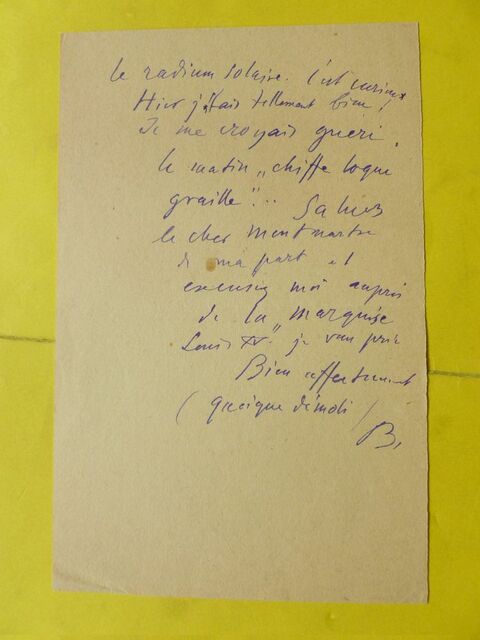 le radium solaire. C'est curieux
Hier j'étais tellement bien !
Je me croyais guéri.
le matin „chiffe loque
graille"... Saluez
le cher Montmartre
de ma part et
excusez moi auprès
de la „Marquise
Louis XV" je vous prie
Bien affectueusement
(quoique démoli)
B.